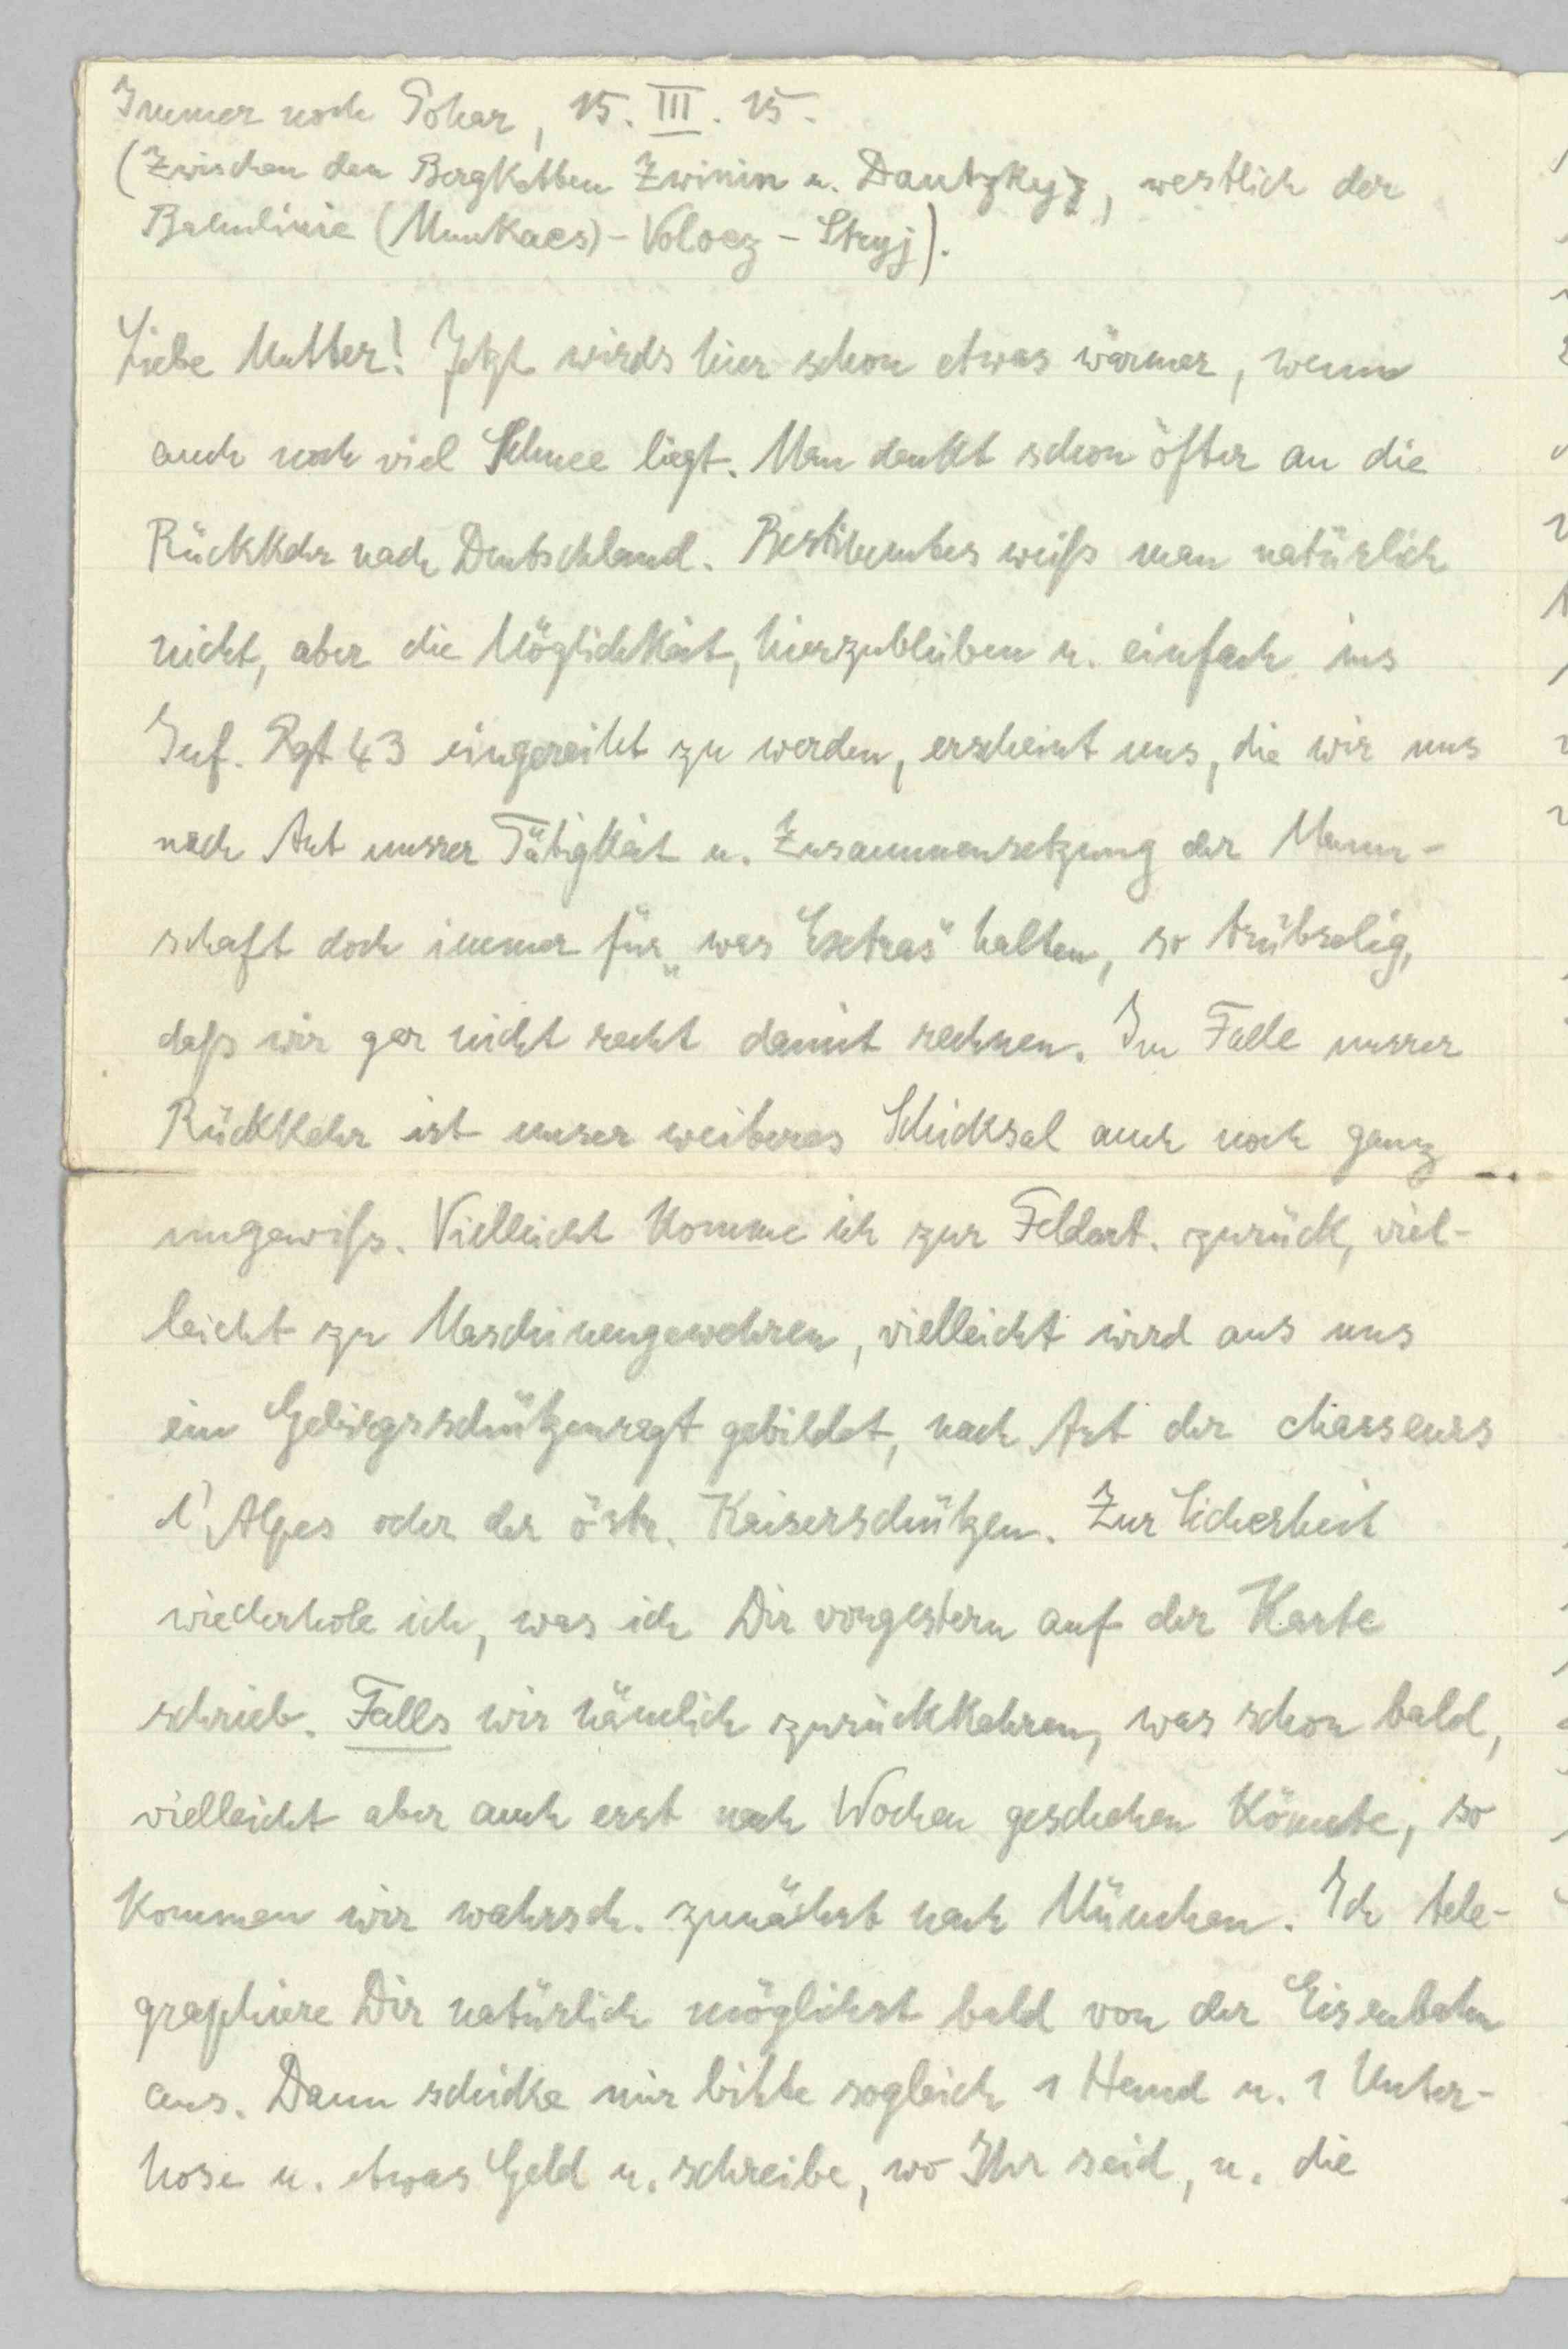 Immer noch Pohar, 15. III. 15.
(Zwischen den Bergketten Zwinin u. Dautzkyj, westlich der
Bahnlinie (Munkacs)-Volocz-Stryj).
Liebe Mutter! Jetzt wirds hier schon etwas wärmer, wenn
auch noch viel Schnee liegt. Man denkt schon öfter an die
Rückkehr nach Deutschland. Bestimmtes weiß man natürlich
nicht, aber die Möglichkeit, hierzubleiben u. einfach ins
Inf. Rgt 43 eingereiht zu werden, erscheint uns, die wir uns
nach Art unsrer Tätigkeit u. Zusammensetzung der Mann-
schaft doch immer für „was Extras" halten, so trübselig,
daß wir gar nicht recht damit rechnen. Im Falle unsrer
Rückkehr ist unser weiteres Schicksal auch noch ganz
ungewiß. Vielleicht komme ich zur Feldart. zurück, viel-
leicht zu Maschinengewehren, vielleicht wird aus uns
ein Gebirgsschützenregt gebildet, nach Art der chasseurs
d'Alpes oder der östr. Kaiserschützen. Zur Sicherheit
wiederhole ich, was ich Dir vorgestern auf der Karte
schrieb. Falls wir nämlich zurückkehren, was schon bald,
vielleicht aber auch erst nach Wochen geschehen könnte, so
kommen wir wahrsch. zunächst nach München. Ich tele-
graphiere Dir natürlich möglichst bald von der Eisenbahn
aus. Dann schicke mir bitte sogleich 1 Hemd u. 1 Unter-
hose u. etwas Geld u. schreibe, wo Ihr seid, u. die